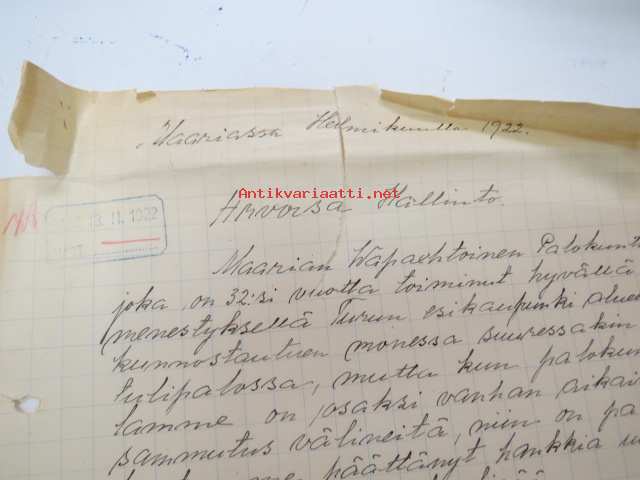 Maariassa Helmikuulla 1922.
Antikvariaatti.net
13. II. 1922
Arvoisa Hallinto
Maarian Wapaehtoinen Palokunta
joka on 32:si vuotta toiminut hyvällä
menestyksellä Turun esikaupunki aluee
kunnostautuen monessa suuressakin
tulipalossa, mutta kun palokun
tamme on osaksi vanhan aikai
sammutus välineitä, niin on pa
päättänyt hankkia u